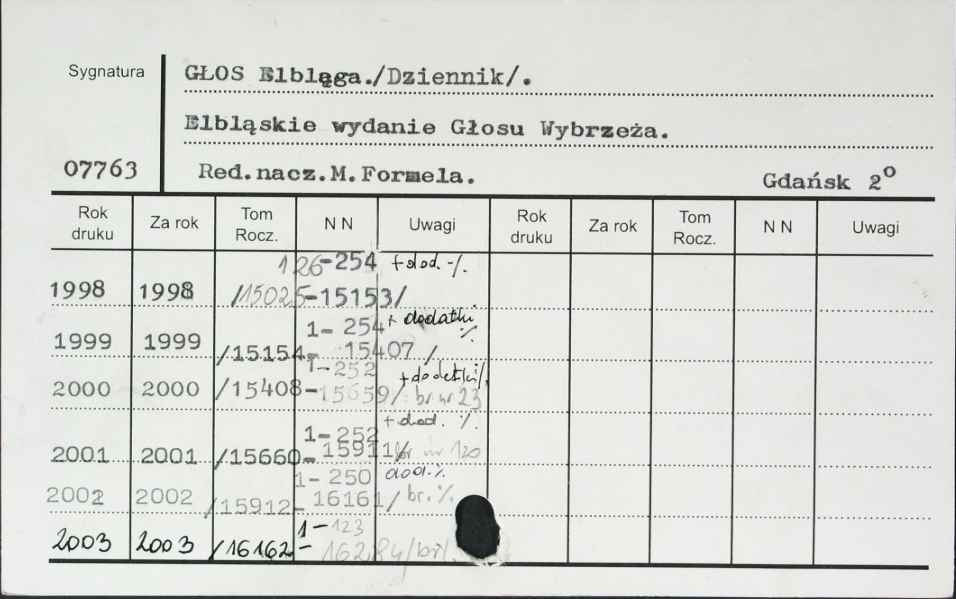 Sygnatura
GŁOS Elbląga./Dziennik/.
Elbląskie wydanie Głosu Wybrzeża.
07763 Red.nacz.M.Formela. Gdańsk 2º
Rok druku Za rok Tom Rocz. N N Uwagi Rok druku Za rok Tom Rocz. N N Uwagi
126-254 +dod. -/.
1998 1998 /15025-15153/
1-254 + dodatki ·/.
1999 1999 /15154-15407 /
1-252 +dodatki/.
2000 2000 /15408-15659/ br nr 23
1-252 +dod. ·/.
2001 2001 /15660-15911/ br nr 120
1-250 dod.·/.
2002 2002 /15912-16161/ br. ·/.
1-123
2003 2003 /16162-16284/br/.